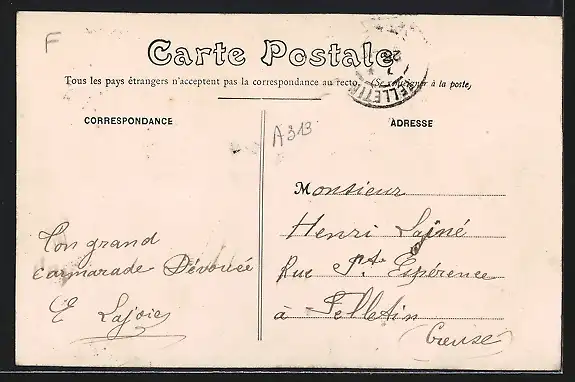 F
Carte Postale
Tous les pays étrangers n'acceptent pas la correspondance au recto. (Se renseigner à la poste)
28
FELLETIN
CORRESPONDANCE
ADRESSE
A313
Monsieur
Henri Lainé
Rue Ste Espérence
à Felletin
(Creuse)
Ton grand
carmarade Dévouée
E Lajoie